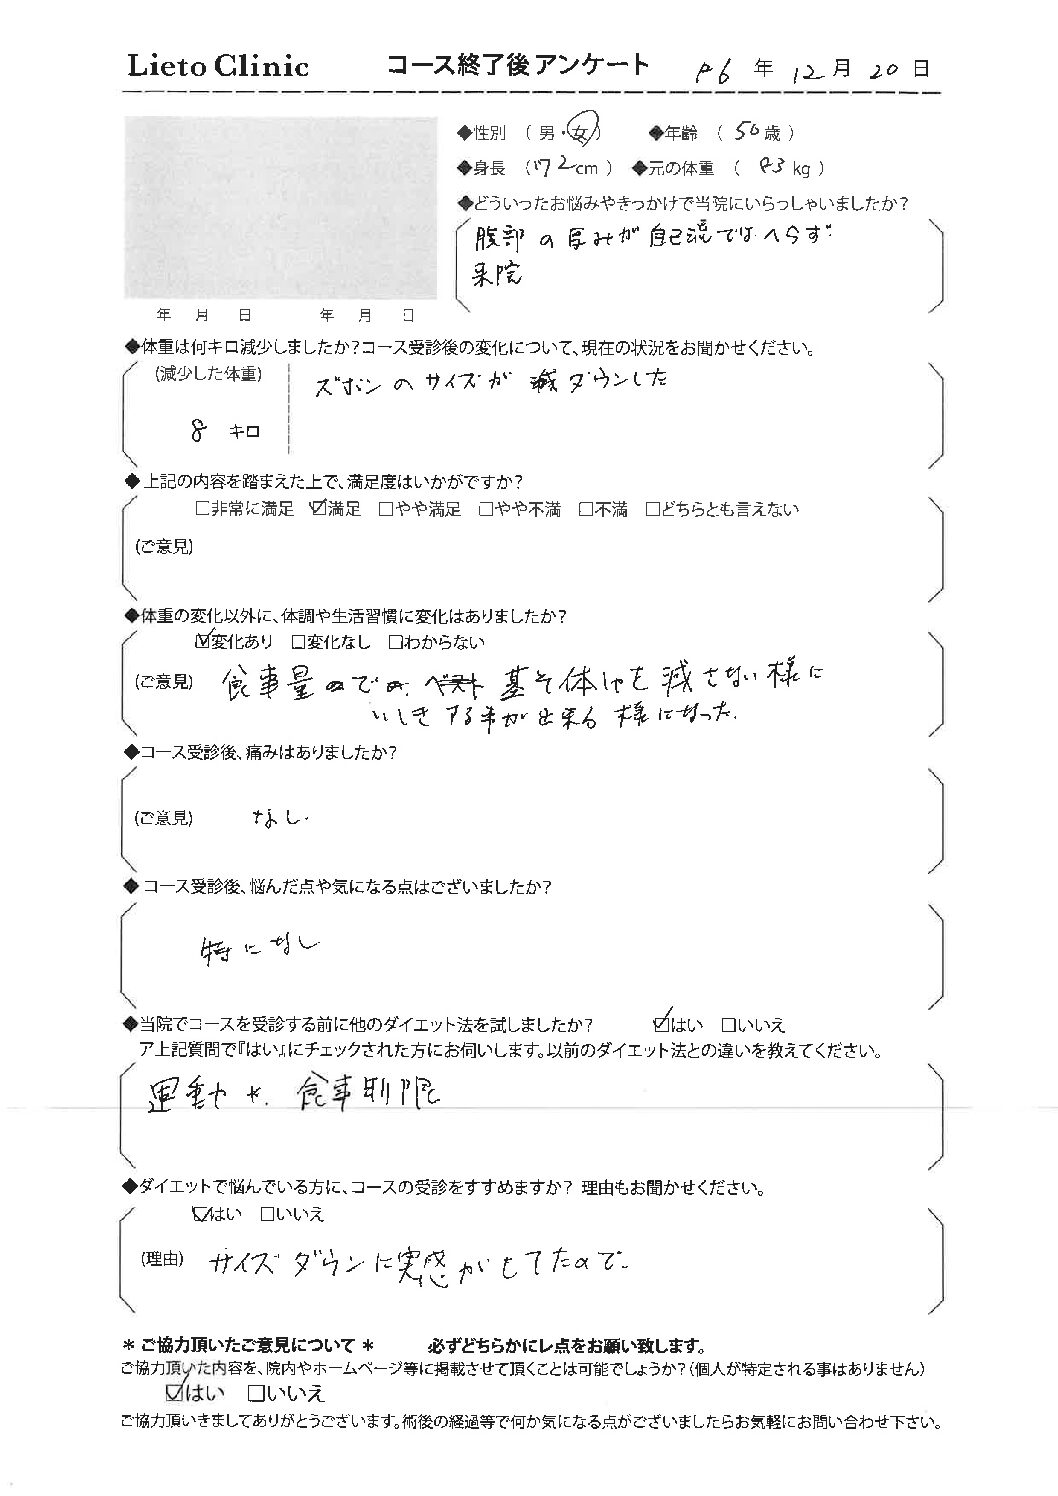 Lieto Clinic コース終了後アンケート R6 年 12 月 20 日
◆性別 ( 男・女 ) ◆年齢 ( 50 歳 )
◆身長 ( 172 cm ) ◆元の体重 ( 83 kg )
◆どういったお悩みやきっかけで当院にいらっしゃいましたか?
腹部の厚みが自己流ではへらず
来院
年 月 日 年 月 日
◆体重は何キロ減少しましたか?コース受診後の変化について、現在の状況をお聞かせください。
(減少した体重) ズボンのサイズが 減ダウンした
8 キロ
◆上記の内容を踏まえた上で、満足度はいかがですか?
□非常に満足 ☑満足 □やや満足 □やや不満 □不満 □どちらとも言えない
(ご意見)
◆体重の変化以外に、体調や生活習慣に変化はありましたか?
☑変化あり □変化なし □わからない
(ご意見) 食事量 基そ体 を減さない様に
いしきする事が出来る様になった.
◆コース受診後、痛みはありましたか?
(ご意見) なし.
◆コース受診後、悩んだ点や気になる点はございましたか?
特になし
◆当院でコースを受診する前に他のダイエット法を試しましたか? ☑はい □いいえ
ア上記質問で『はい』にチェックされた方にお伺いします。以前のダイエット法との違いを教えてください。
運動 食事制限
◆ダイエットで悩んでいる方に、コースの受診をすすめますか? 理由もお聞かせください。
☑はい □いいえ
(理由) サイズダウンに実感がもてたので.
* ご協力頂いたご意見について * 必ずどちらかにレ点をお願い致します。
ご協力頂いた内容を、院内やホームページ等に掲載させて頂くことは可能でしょうか?(個人が特定される事はありません)
☑はい □いいえ
ご協力頂いきましてありがとうございます。術後の経過等で何か気になる点がございましたらお気軽にお問い合わせ下さい。